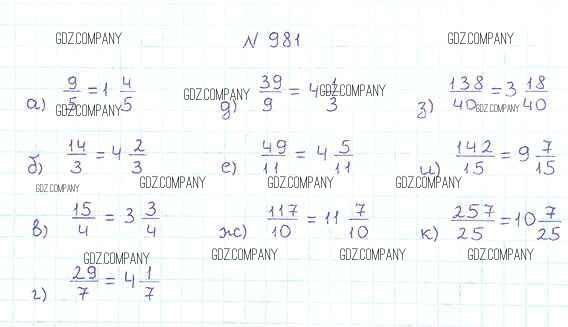 № 981
GDZ.COMPANY GDZ.COMPANY
а) 9/5 = 1 4/5 д) 39/9 = 4 1/3 з) 138/40 = 3 18/40
GDZ.COMPANY GDZ.COMPANY GDZ.COMPANY GDZ.COMPANY
б) 14/3 = 4 2/3 е) 49/11 = 4 5/11 и) 142/15 = 9 7/15
GDZ.COMPANY GDZ.COMPANY GDZ.COMPANY GDZ.COMPANY
в) 15/4 = 3 3/4 ж) 117/10 = 11 7/10 к) 257/25 = 10 7/25
GDZ.COMPANY GDZ.COMPANY GDZ.COMPANY GDZ.COMPANY
г) 29/7 = 4 1/7